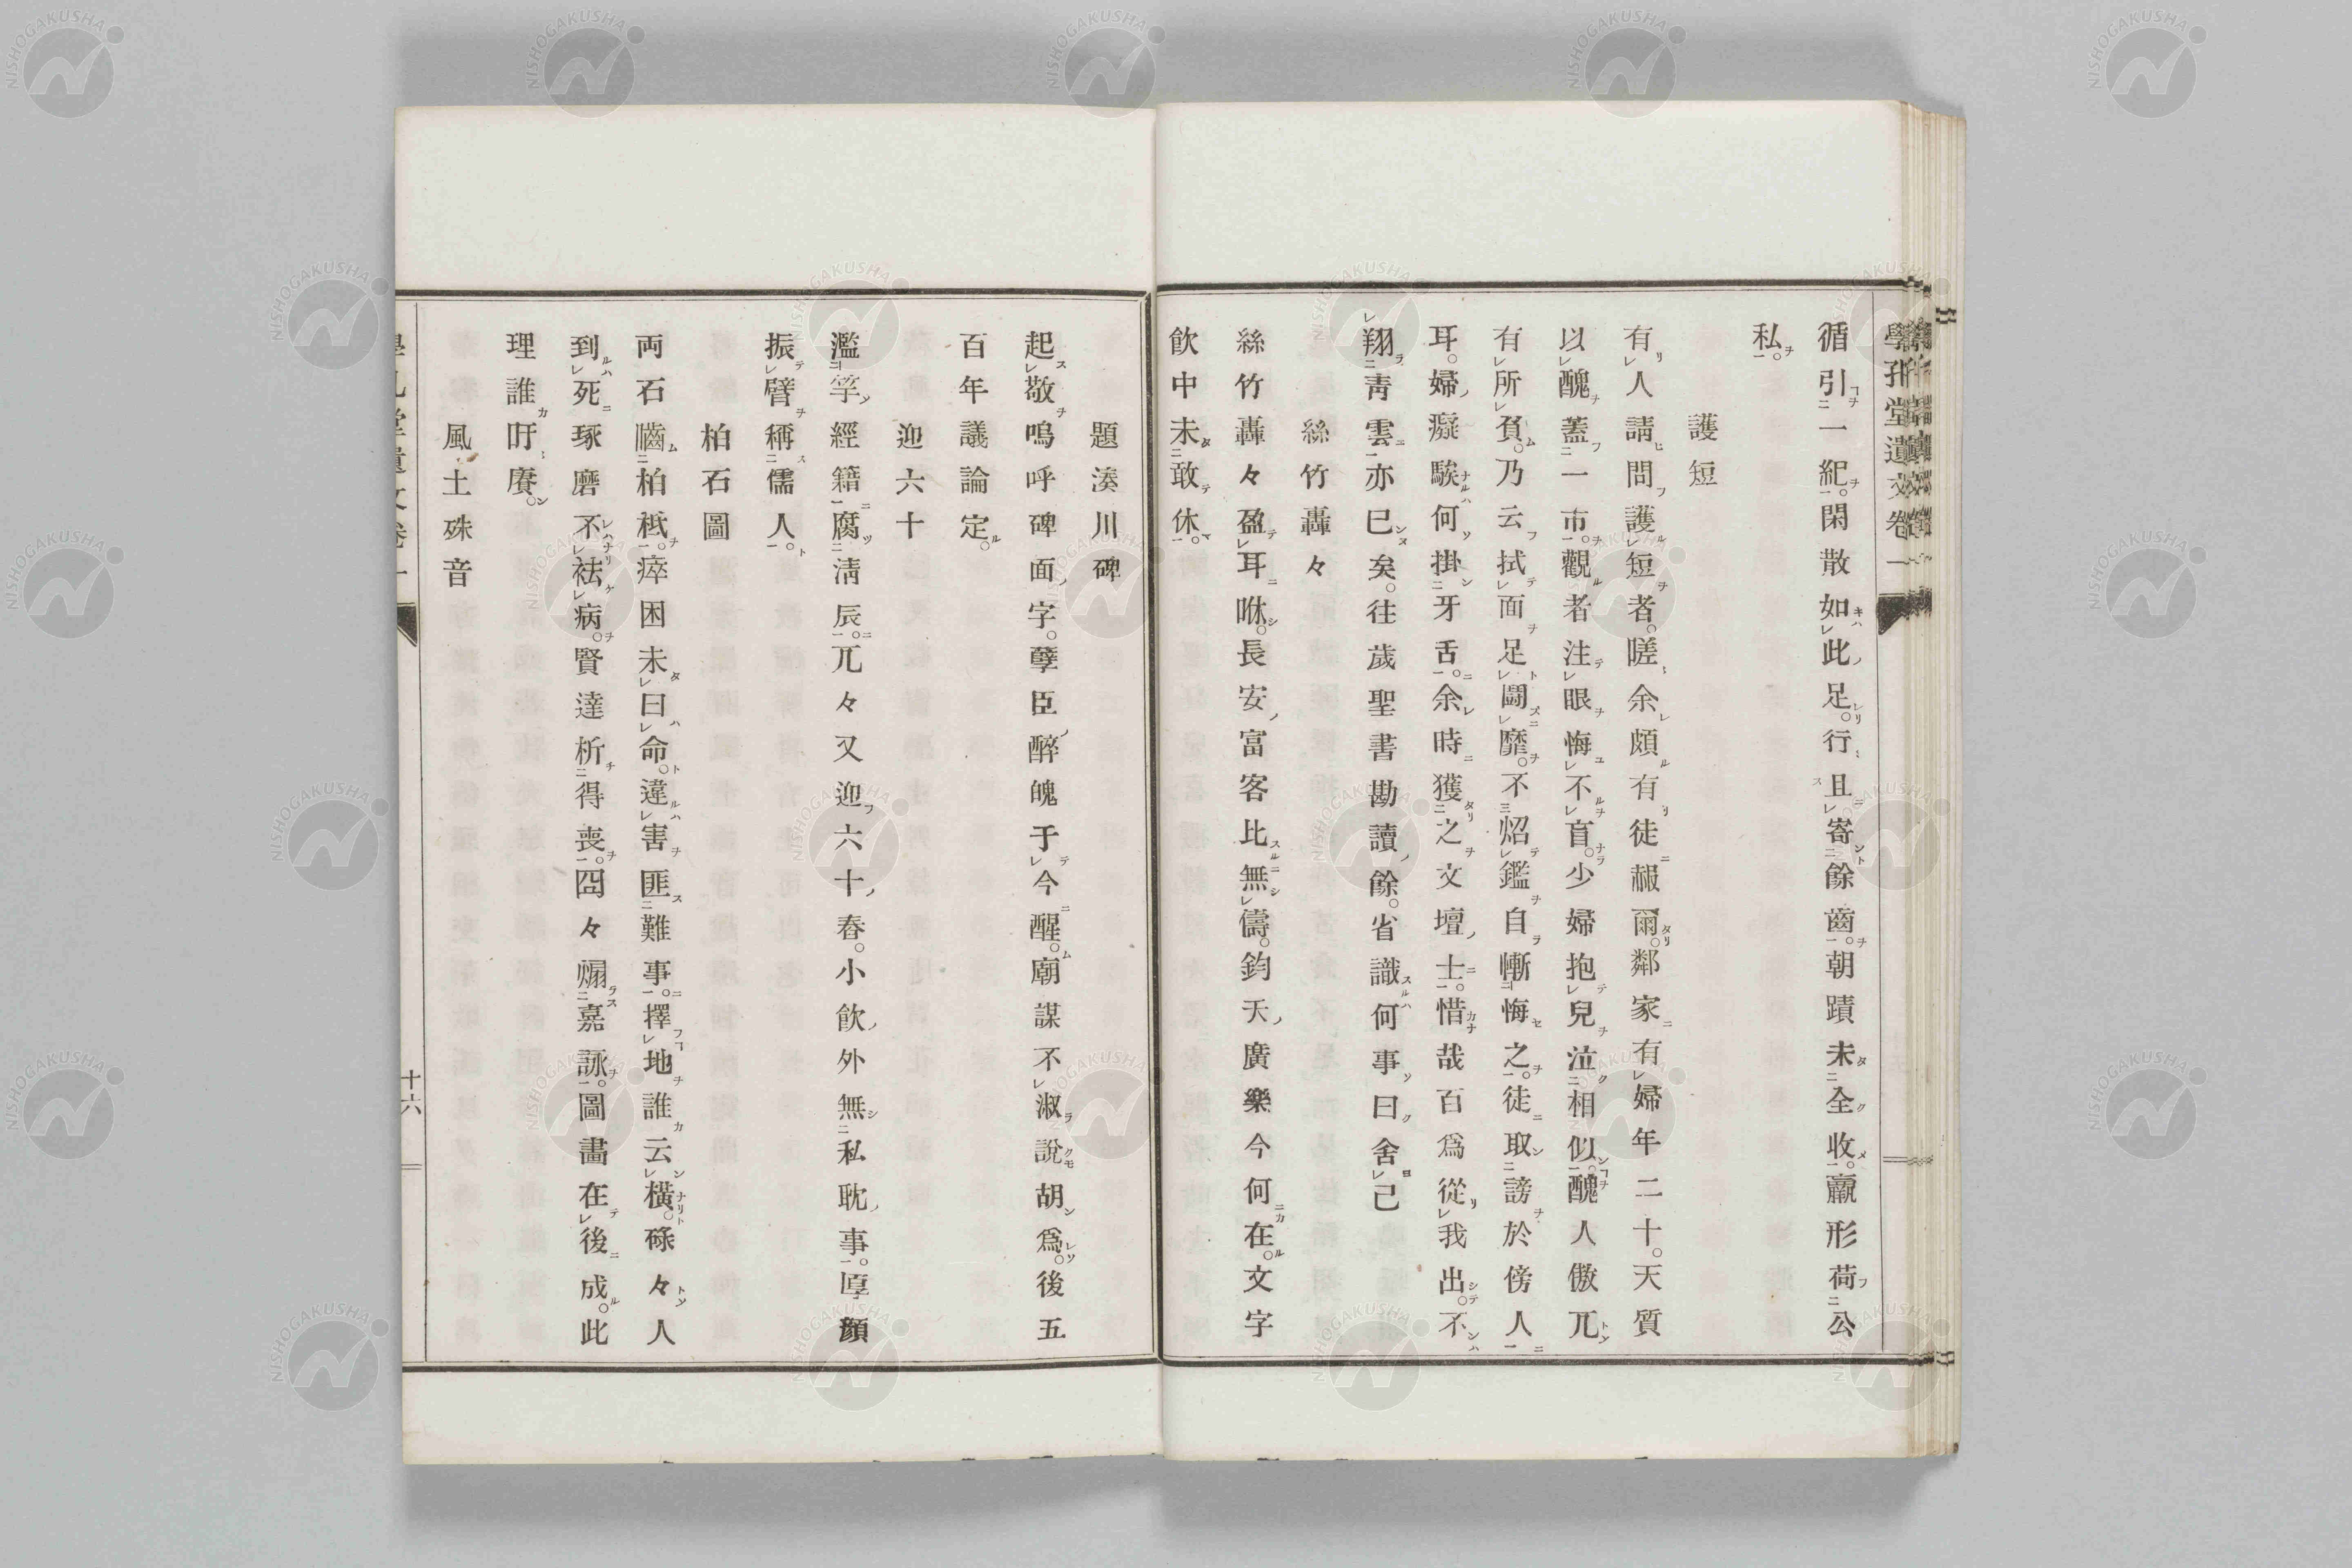 學孔堂遺文卷一
循引一紀。閑散如此足。行且寄餘齒。朝蹟未全收。羸形荷公
私。
護短
有人請問護短者。嗟余頗有徒赧爾。鄰家有婦年二十。天質
以醜蓋一市。觀者注眼悔不盲。少婦抱兒泣相似。醜人傲兀
有所負。乃云拭面足鬪靡。不炤鑑自慚悔之。徒取謗於傍人
耳。婦癡騃何掛牙舌。余時獲之文壇士。惜哉百爲從我出。不
翔青雲亦已矣。往歲聖書勘讀餘。省識何事曰舍己
絲竹轟々
絲竹轟々盈耳咻。長安富客比無儔。鈞天廣樂今何在。文字
飮中未敢休。
題湊川碑
起敬嗚呼碑面字。孽臣醉魄于今醒。廟謀不淑說胡爲。後五
百年議論定。
迎六十
濫竽經籍腐淸辰。兀々又迎六十春。小飮外無私耽事。厚顏
振臂稱儒人。
柏石圖
両石齫柏柢。瘁困未曰命。違害匪難事。擇地誰云橫。碌々人
到死琢磨不祛病。賢達析得喪。囧々煽嘉詠。圖畫在後成。此
理誰吁賡。
風土殊音
學孔堂遺文卷一
十六